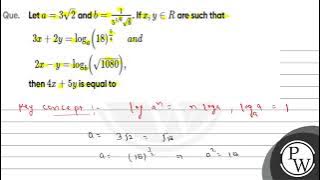 Que. Let a = 3√2 and b = 1/(5^{1/6}√6). If x, y ∈ R are such that
3x + 2y = log_a (18)^{5/4} and
2x − y = log_b (√1080),
then 4x + 5y is equal to
Key concept :- log aⁿ = n log a , log_a a = 1
a = 3√2 = √18
a = (18)^{1/2} ⇒ a² = 18
PW